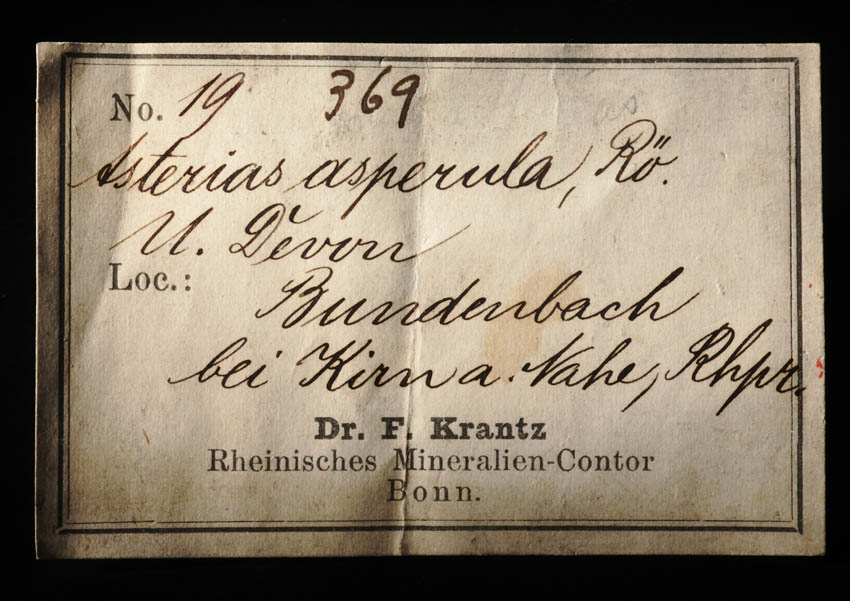 No. 19 369
as
Asterias asperula, Rö.
U. Devon
Loc.:
Bundenbach
bei Kirn a. Nahe, Rhpr.
Dr. F. Krantz
Rheinisches Mineralien-Contor
Bonn.